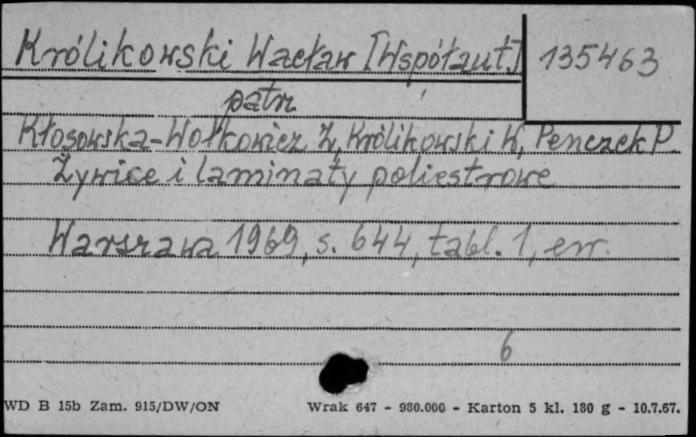 Królikowski Wacław [Współaut.] 135463
patrz
Kłosowska-Wołkowicz Z, Królikowski W, Penczek P.
Żywice i laminaty poliestrowe
Warszawa 1969, s. 644, tabl. 1, err.
6
WD B 15b Zam. 915/DW/ON Wrak 647 - 980.000 - Karton 5 kl. 180 g - 10.7.67.